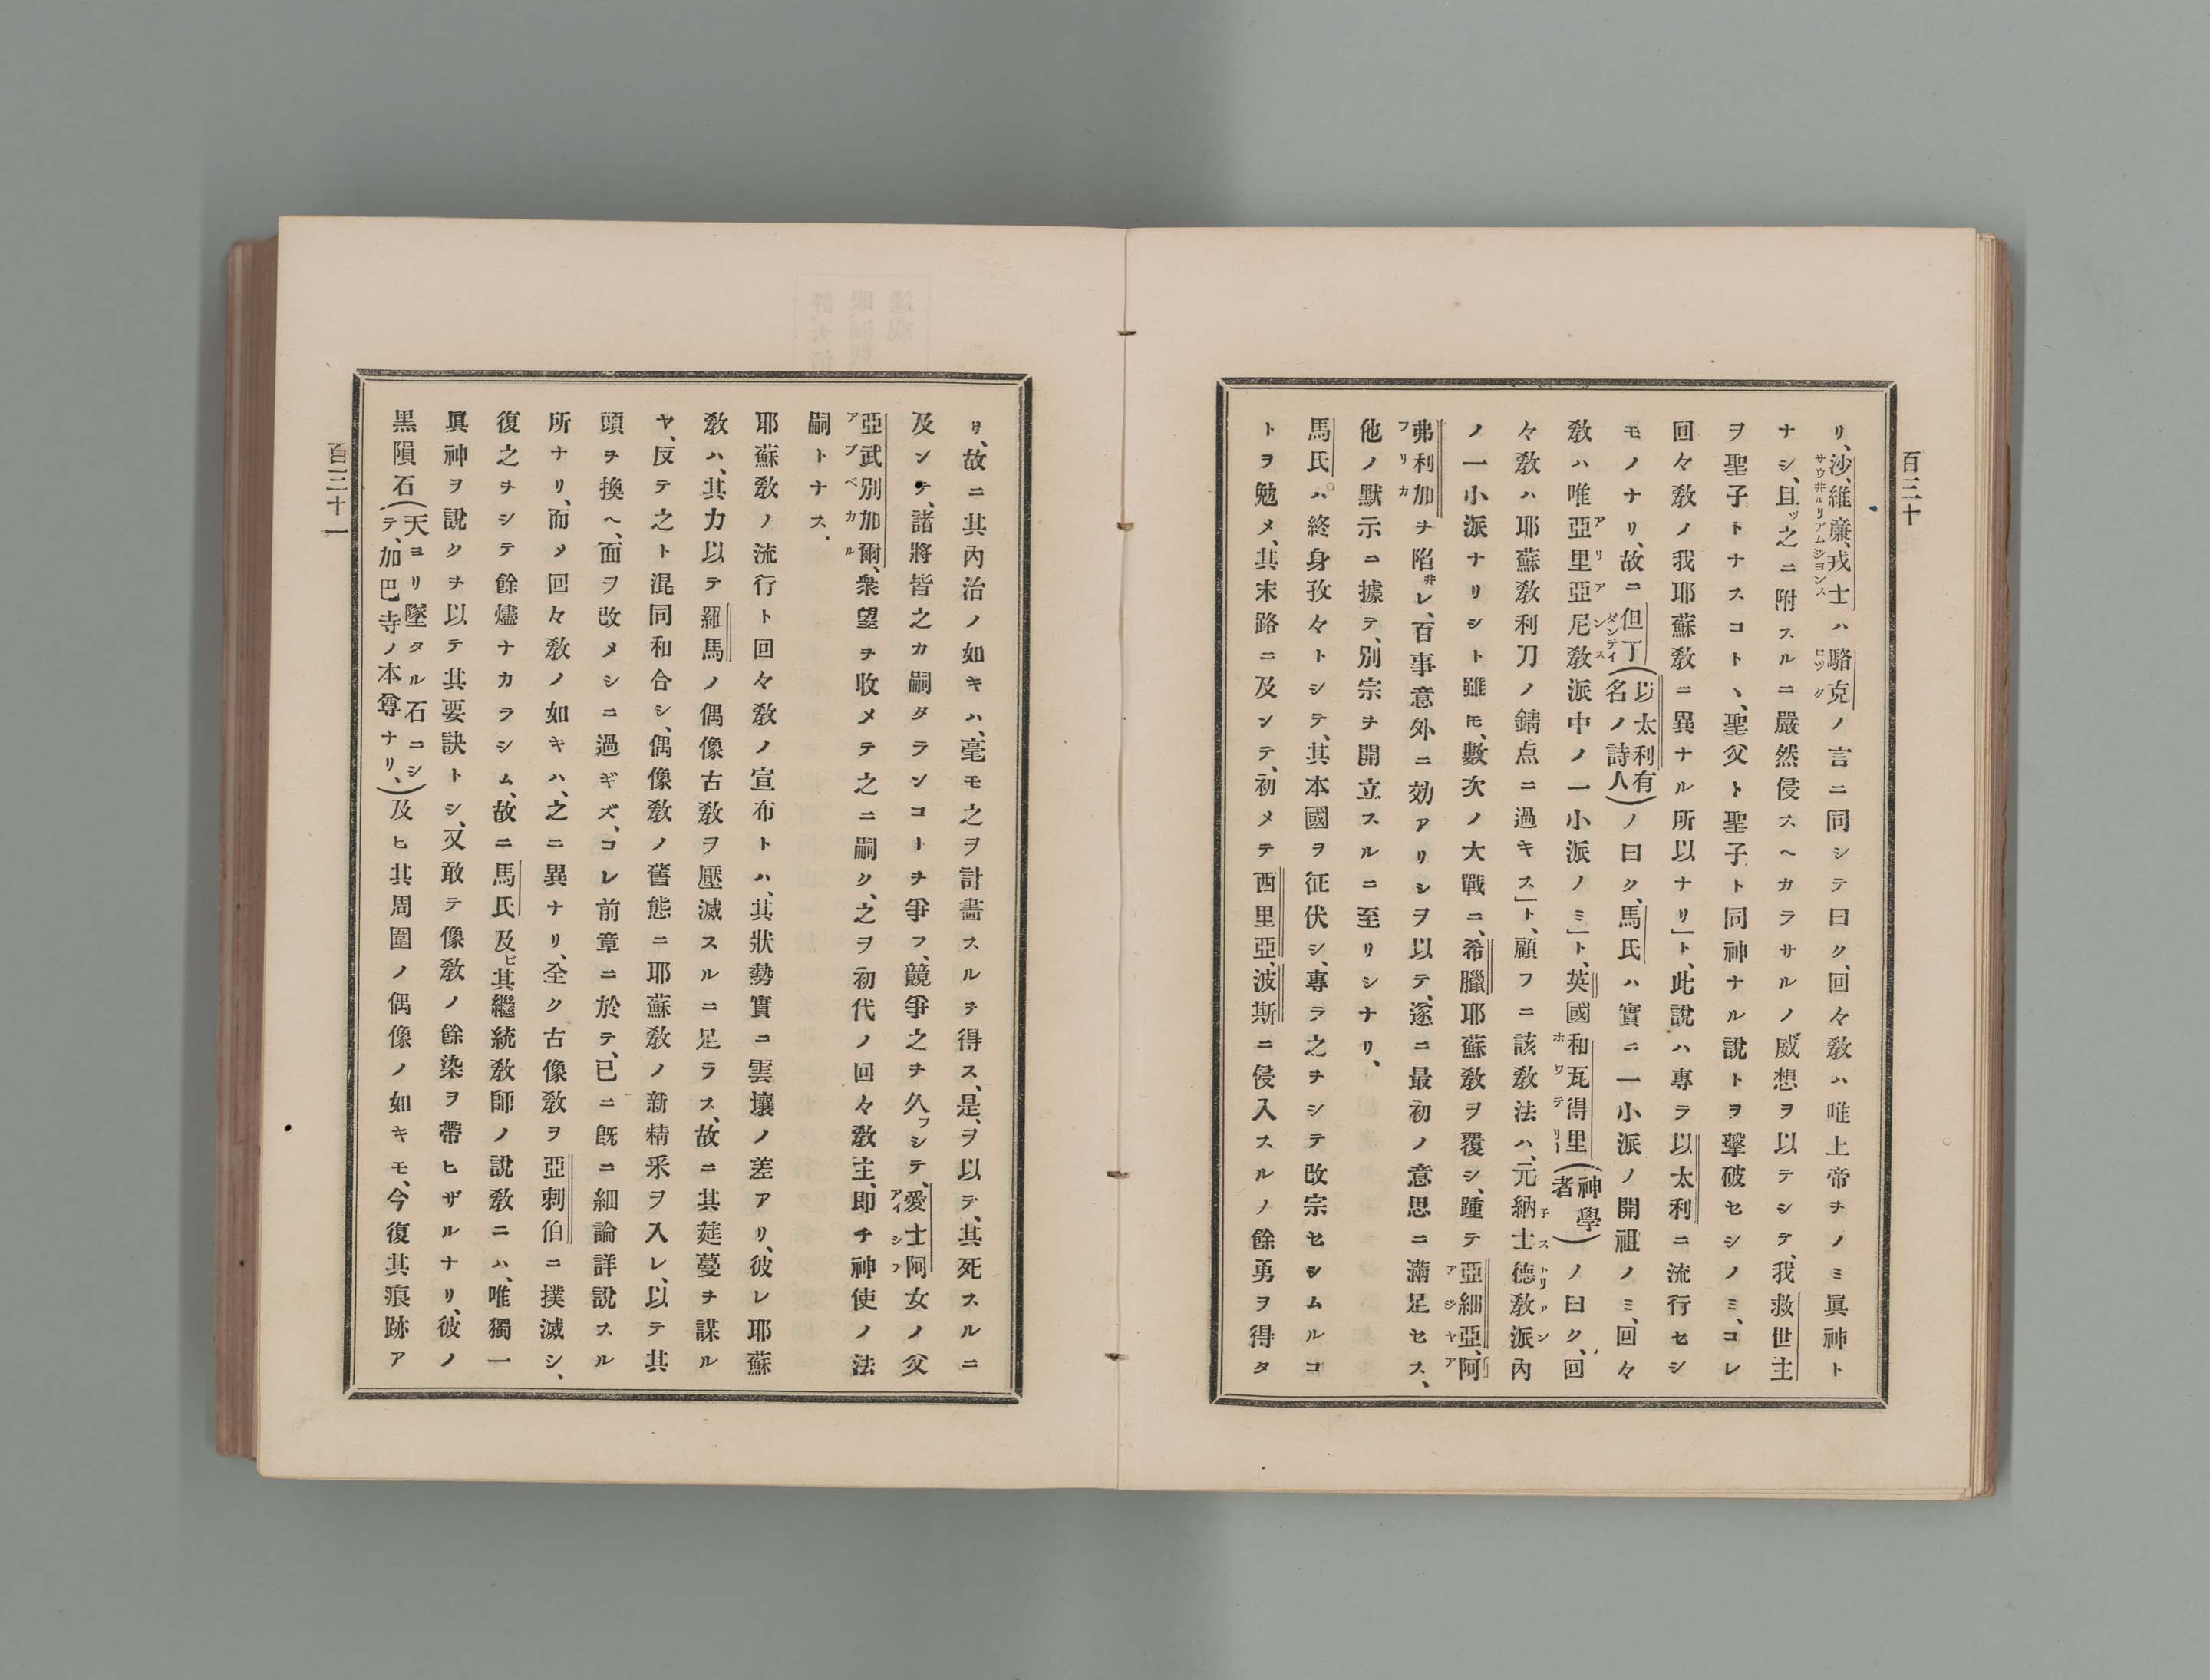 百三十
リ、沙維廉、戎士ハ駱克ノ言ニ同シテ曰ク、回々教ハ唯上帝ヲノミ眞神ト
ナシ、且ッ之ニ附スルニ嚴然侵スヘカラサルノ威想ヲ以テシテ、我救世主
ヲ聖子トナスコト、聖父ト聖子ト同神ナル說トヲ擊破セシノミ、コレ
回々教ノ我耶蘇教ニ異ナル所以ナリ」ト、此說ハ專ラ以太利ニ流行セシ
モノナリ、故ニ但丁(以太利有名ノ詩人)ノ曰ク、馬氏ハ實ニ一小派ノ開祖ノミ、回々
教ハ唯亞里亞尼教派中ノ一小派ノミ」ト、英國和瓦得里(神學者)ノ曰ク、回
々教ハ耶蘇教利刀ノ錆点ニ過キス」ト、顧フニ該教法ハ、元納士德教派內
ノ一小派ナリシト雖モ、數次ノ大戰ニ、希臘耶蘇教ヲ覆シ、踵テ亞細亞、阿
弗利加ヲ陷井レ、百事意外ニ効アリシヲ以テ、遂ニ最初ノ意思ニ滿足セス、
他ノ默示ニ據テ、別宗ヲ開立スルニ至リシナリ、
馬氏ハ終身孜々トシテ、其本國ヲ征伏シ、專ラ之ヲシテ改宗セシムルコ
トヲ勉メ、其末路ニ及ンテ、初メテ西里亞、波斯ニ侵入スルノ餘勇ヲ得タ
リ、故ニ其內治ノ如キハ、毫モ之ヲ計畫スルヲ得ス、是ヲ以テ、其死スルニ
及ンテ、諸將皆之カ嗣タランコトヲ爭フ、競爭之ヲ久フシテ、愛士阿女ノ父
亞武別加爾、衆望ヲ收メテ之ニ嗣ク、之ヲ初代ノ回々教主、即チ神使ノ法
嗣トナス.
耶蘇教ノ流行ト回々教ノ宣布トハ、其狀勢實ニ雲壤ノ差アリ、彼レ耶蘇
教ハ、其力以テ羅馬ノ偶像古教ヲ壓滅スルニ足ラス、故ニ其莚蔓ヲ謀ル
ヤ、反テ之ト混同和合シ、偶像教ノ舊態ニ耶蘇教ノ新精采ヲ入レ、以テ其
頭ヲ換ヘ、面ヲ改メシニ過ギズ、コレ前章ニ於テ、已ニ旣ニ細論詳說スル
所ナリ、而メ回々教ノ如キハ、之ニ異ナリ、全ク古像教ヲ亞剌伯ニ撲滅シ、
復之ヲシテ餘燼ナカラシム、故ニ馬氏及ヒ其繼統教師ノ說教ニハ、唯獨一
眞神ヲ說クヲ以テ其要訣トシ、又敢テ像教ノ餘染ヲ帶ヒザルナリ、彼ノ
黑隕石(天ヨリ墜タル石ニシテ、加巴寺ノ本尊ナリ、)及ヒ其周圍ノ偶像ノ如キモ、今復其痕跡ア
百三十一